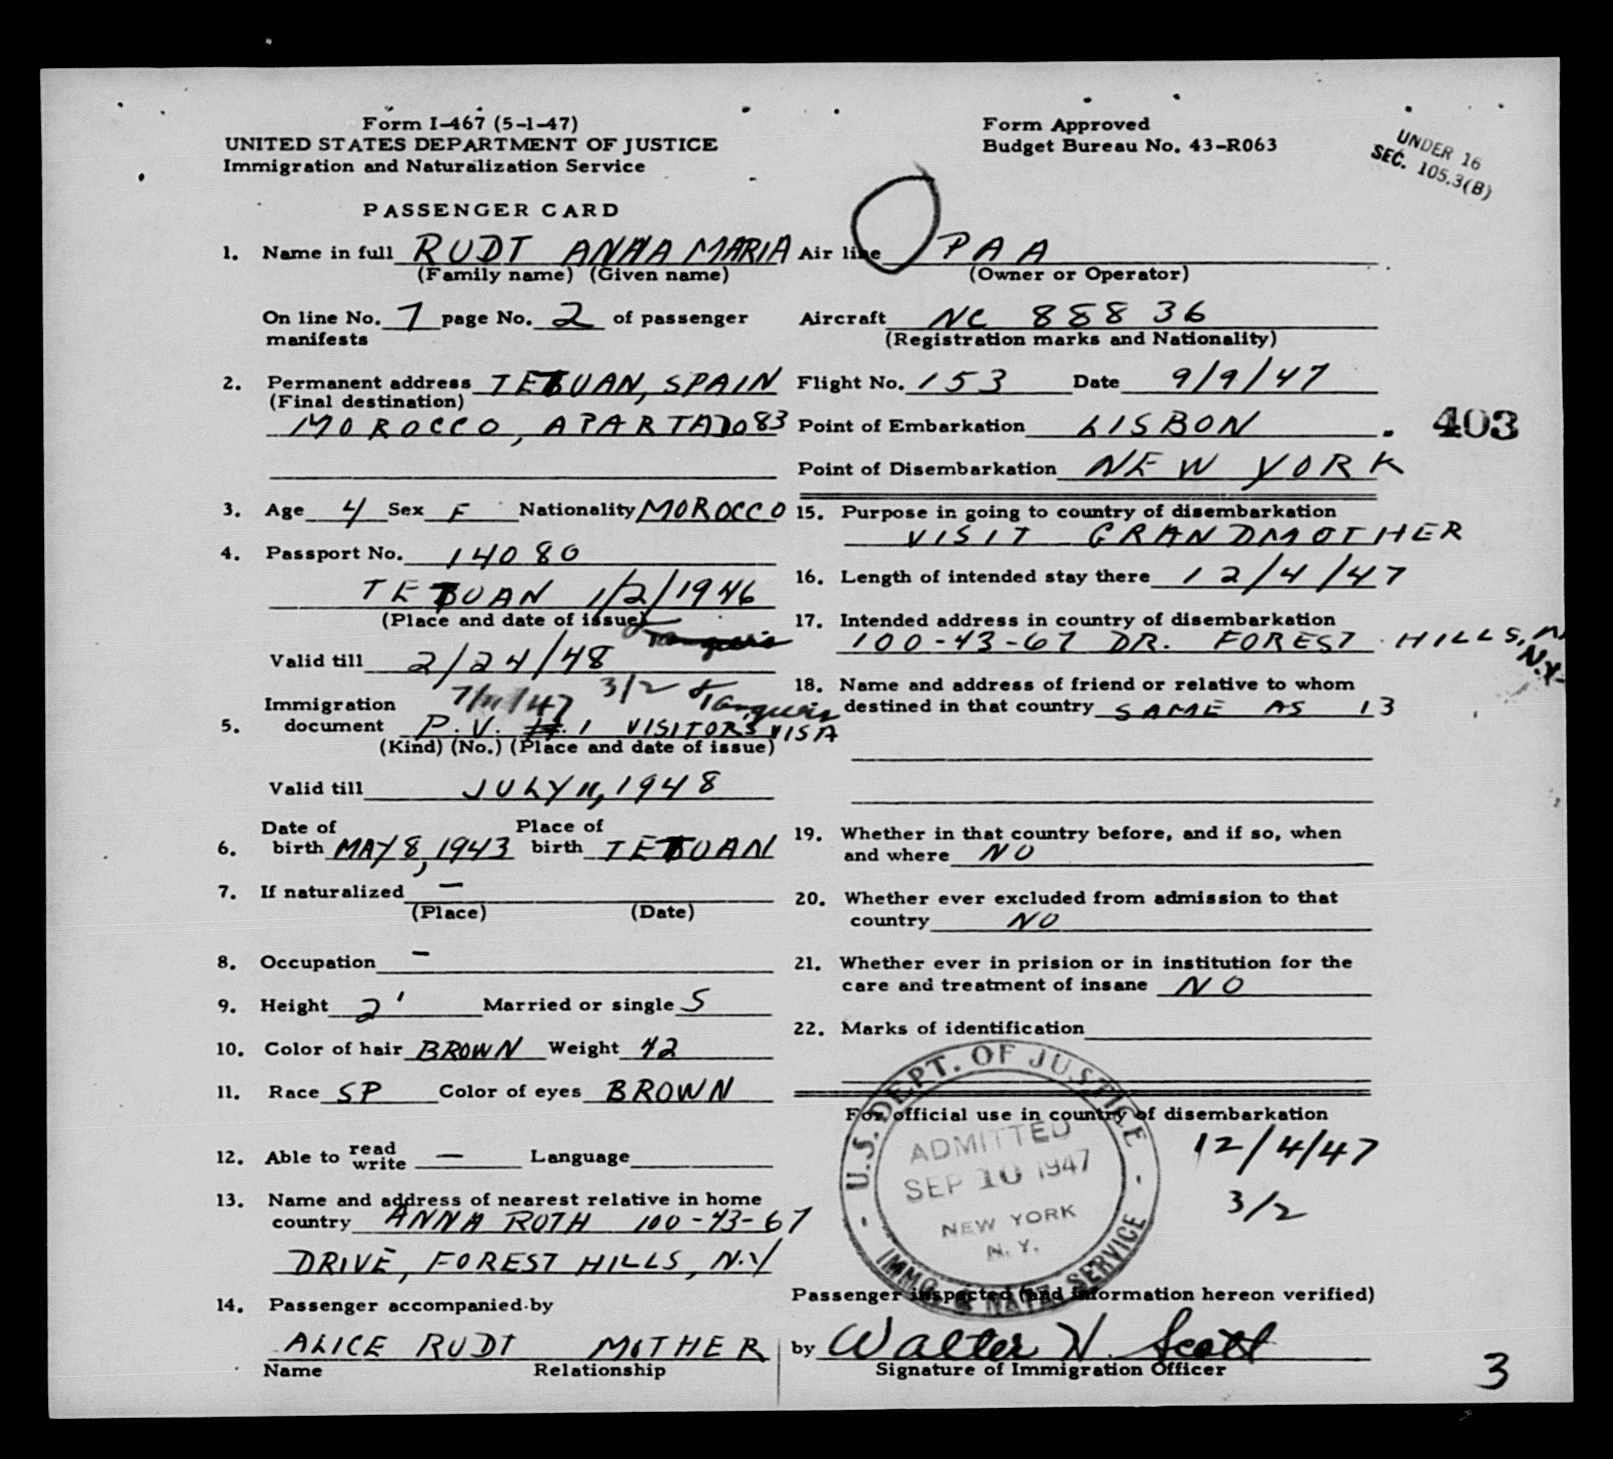 Form I-467 (5-1-47)
UNITED STATES DEPARTMENT OF JUSTICE
Immigration and Naturalization Service
Form Approved
Budget Bureau No. 43-R063
UNDER 16
SEC. 105.3(B)
PASSENGER CARD
1. Name in full RUDT ANNA MARIA
(Family name) (Given name)
On line No. 7 page No. 2 of passenger
manifests
2. Permanent address TETUAN, SPAIN
(Final destination)
MOROCCO, APARTADO 83
3. Age 4 Sex F Nationality MOROCCO
4. Passport No. 14080
TETUAN 1/2/1946
(Place and date of issue)
Valid till 2/24/48
7/11/47 3/2
Immigration
5. document P.V. 1 VISITORS VISA
(Kind) (No.) (Place and date of issue)
Valid till JULY 11, 1948
Date of Place of
6. birth MAY 8, 1943 birth TETUAN
7. If naturalized —
(Place) (Date)
8. Occupation —
9. Height 2' Married or single S
10. Color of hair BROWN Weight 42
11. Race SP Color of eyes BROWN
12. Able to read write — Language
13. Name and address of nearest relative in home
country ANNA ROTH 100-43-67
DRIVE, FOREST HILLS, N.Y
14. Passenger accompanied by
ALICE RUDT MOTHER
Name Relationship
Air line PAA
(Owner or Operator)
Aircraft NC 88836
(Registration marks and Nationality)
Flight No. 153 Date 9/9/47
Point of Embarkation LISBON
403
Point of Disembarkation NEW YORK
15. Purpose in going to country of disembarkation
VISIT GRANDMOTHER
16. Length of intended stay there 12/4/47
17. Intended address in country of disembarkation
100-43-67 DR. FOREST HILLS,
N.Y.
18. Name and address of friend or relative to whom
destined in that country SAME AS 13
19. Whether in that country before, and if so, when
and where NO
20. Whether ever excluded from admission to that
country NO
21. Whether ever in prision or in institution for the
care and treatment of insane NO
22. Marks of identification
For official use in country of disembarkation
12/4/47
3/2
U.S. DEPT. OF JUSTICE
ADMITTED
SEP 10 1947
NEW YORK
N.Y.
IMMG. & NATZ. SERVICE
Passenger inspected (and information hereon verified)
by Walter H. Scott
Signature of Immigration Officer
3